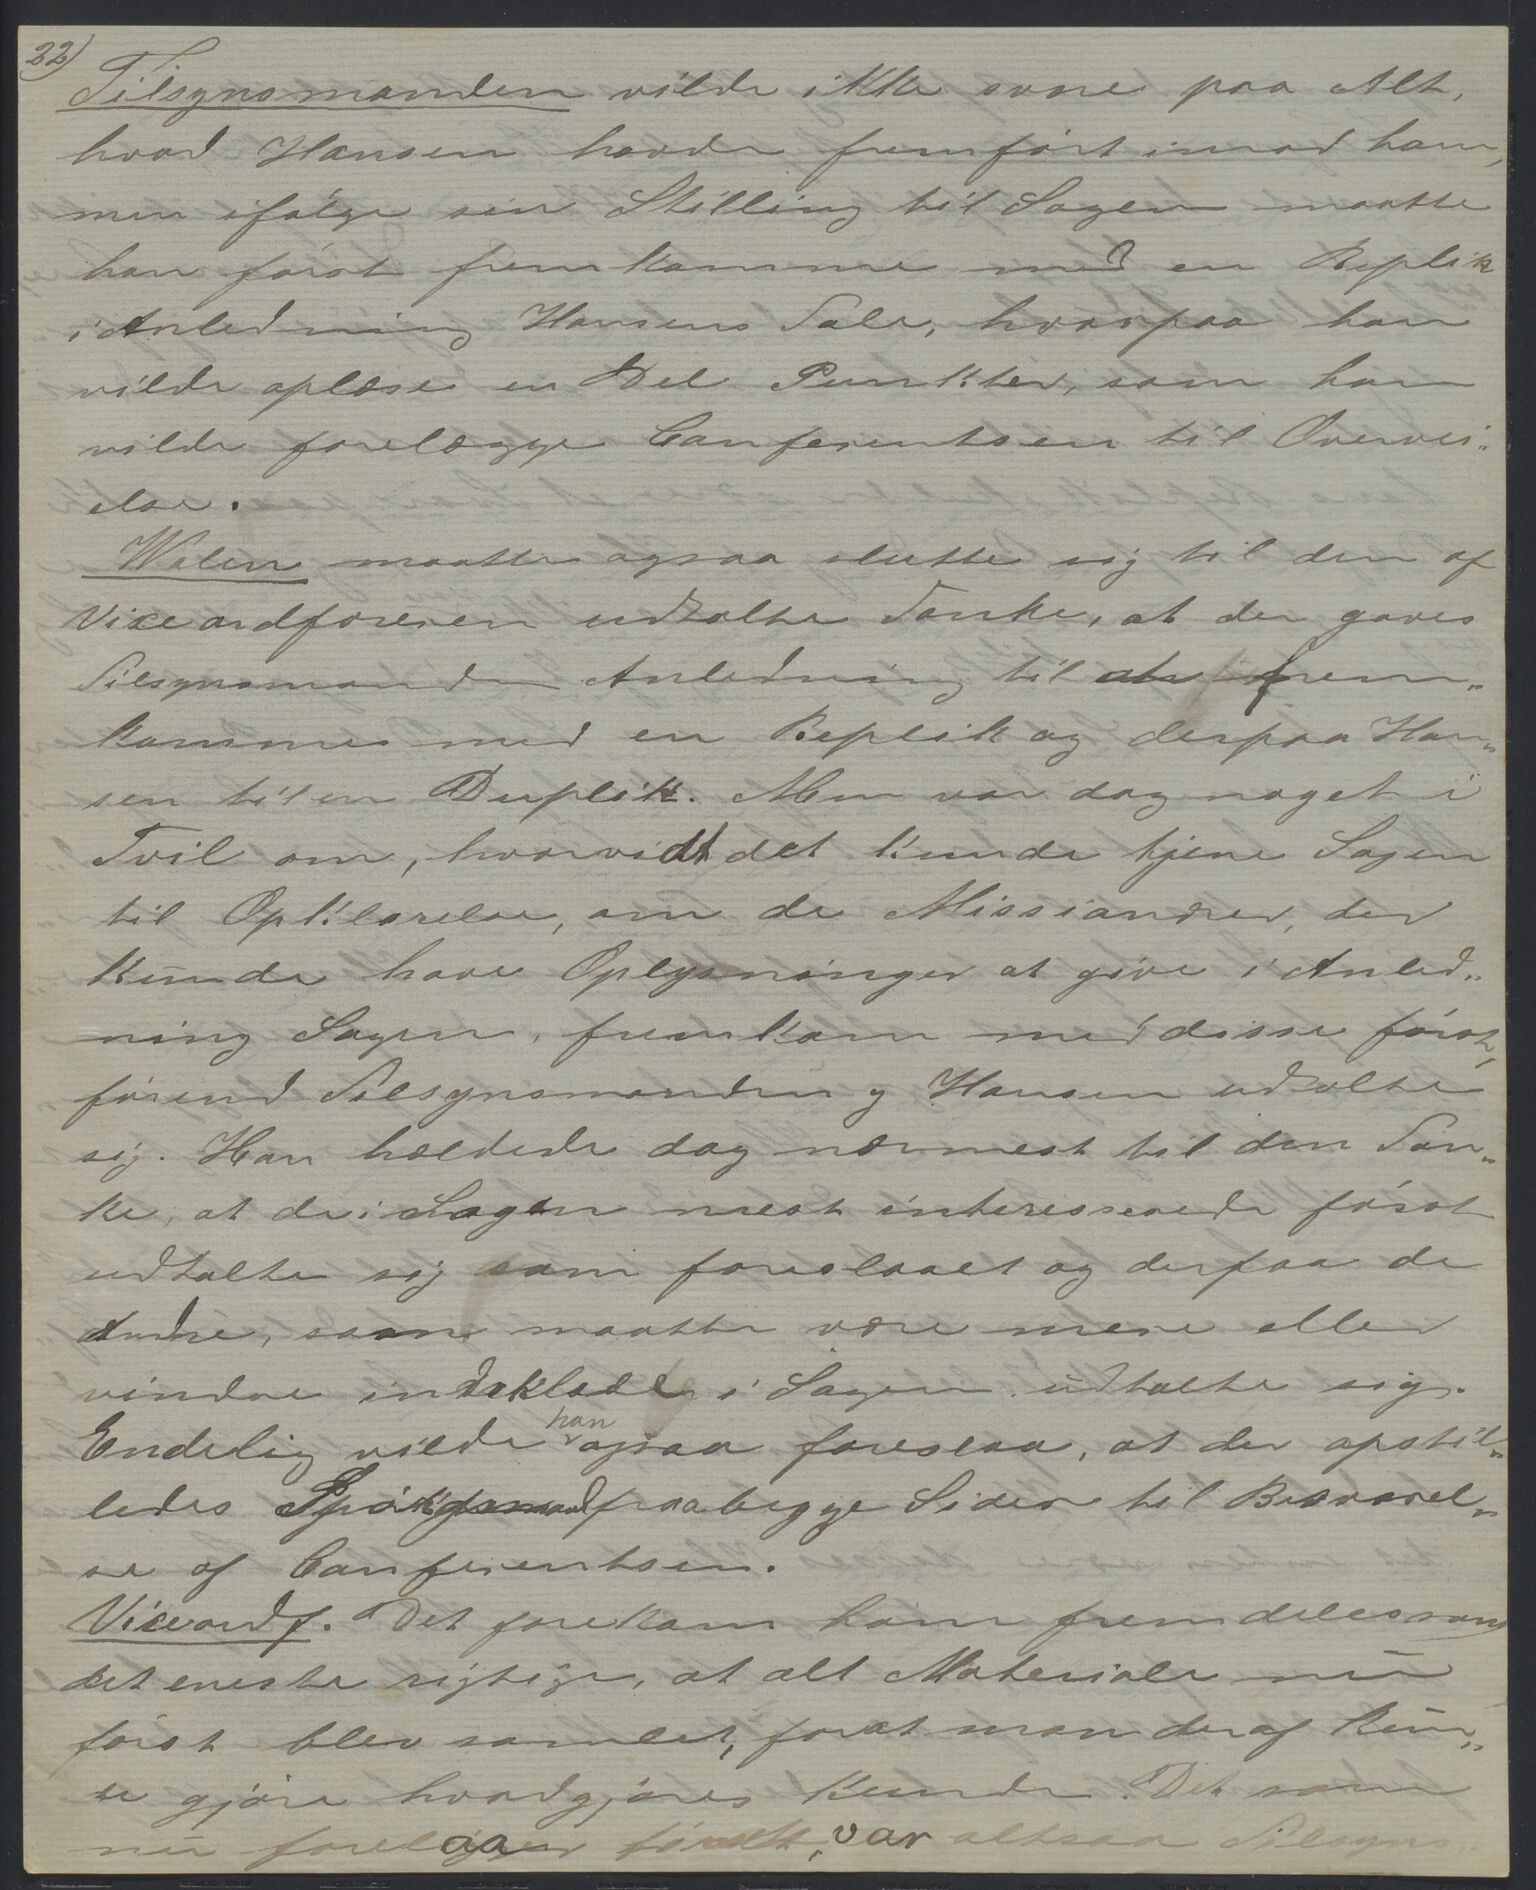 22)
Tilsynsmanden vilde ikke svare paa Alt,
hvad Hansen havde fremført imod ham,
men ifølge sin Stilling til Sagen maatte
han først fremkomme med en Replik
i Anledning Hansens Tale, hvorpaa han
vilde oplæse en Del Punkter, som han
vilde forelægge Conferentsen til Overvei„
else.
Walen maatte ogsaa slutte sig til den af
Viceordføreren udtalte Tanke, at der gaves
Tilsynsmanden Anledning til frem„
komme med en Replik og derpaa Han„
sen til en Duplik. Men var dog noget i
Tvil om, hvorvidt det kunde tjene Sagen
til Opklarelse, om de Missionærer, der
kunde have Oplysninger at give i Anled„
ning Sagen, fremkom med disse først,
førend Tilsynsmanden og Hansen udtalte
sig. Han hældede dog nærmest til den Tan„
ke, at de i Sagen mest interesserede først
udtalte sig som foreslaaet og derpaa de
Andre, som maatte være mere eller
mindre indviklede i Sagen udtalte sig.
Endelig vilde han ogsaa foreslaa, at der opstil„
ledes Spørgsmaal fra begge Sider til Besvarel„
se af Conferentsen.
Viceordf. Det forekom ham fremdeles som
det eneste rigtige, at alt Materiale nu
først blev samlet, forat man deraf kun„
e gjøre hvad gjøres kunde. Det som
nu forelaa, var altsaa Tilsyns„